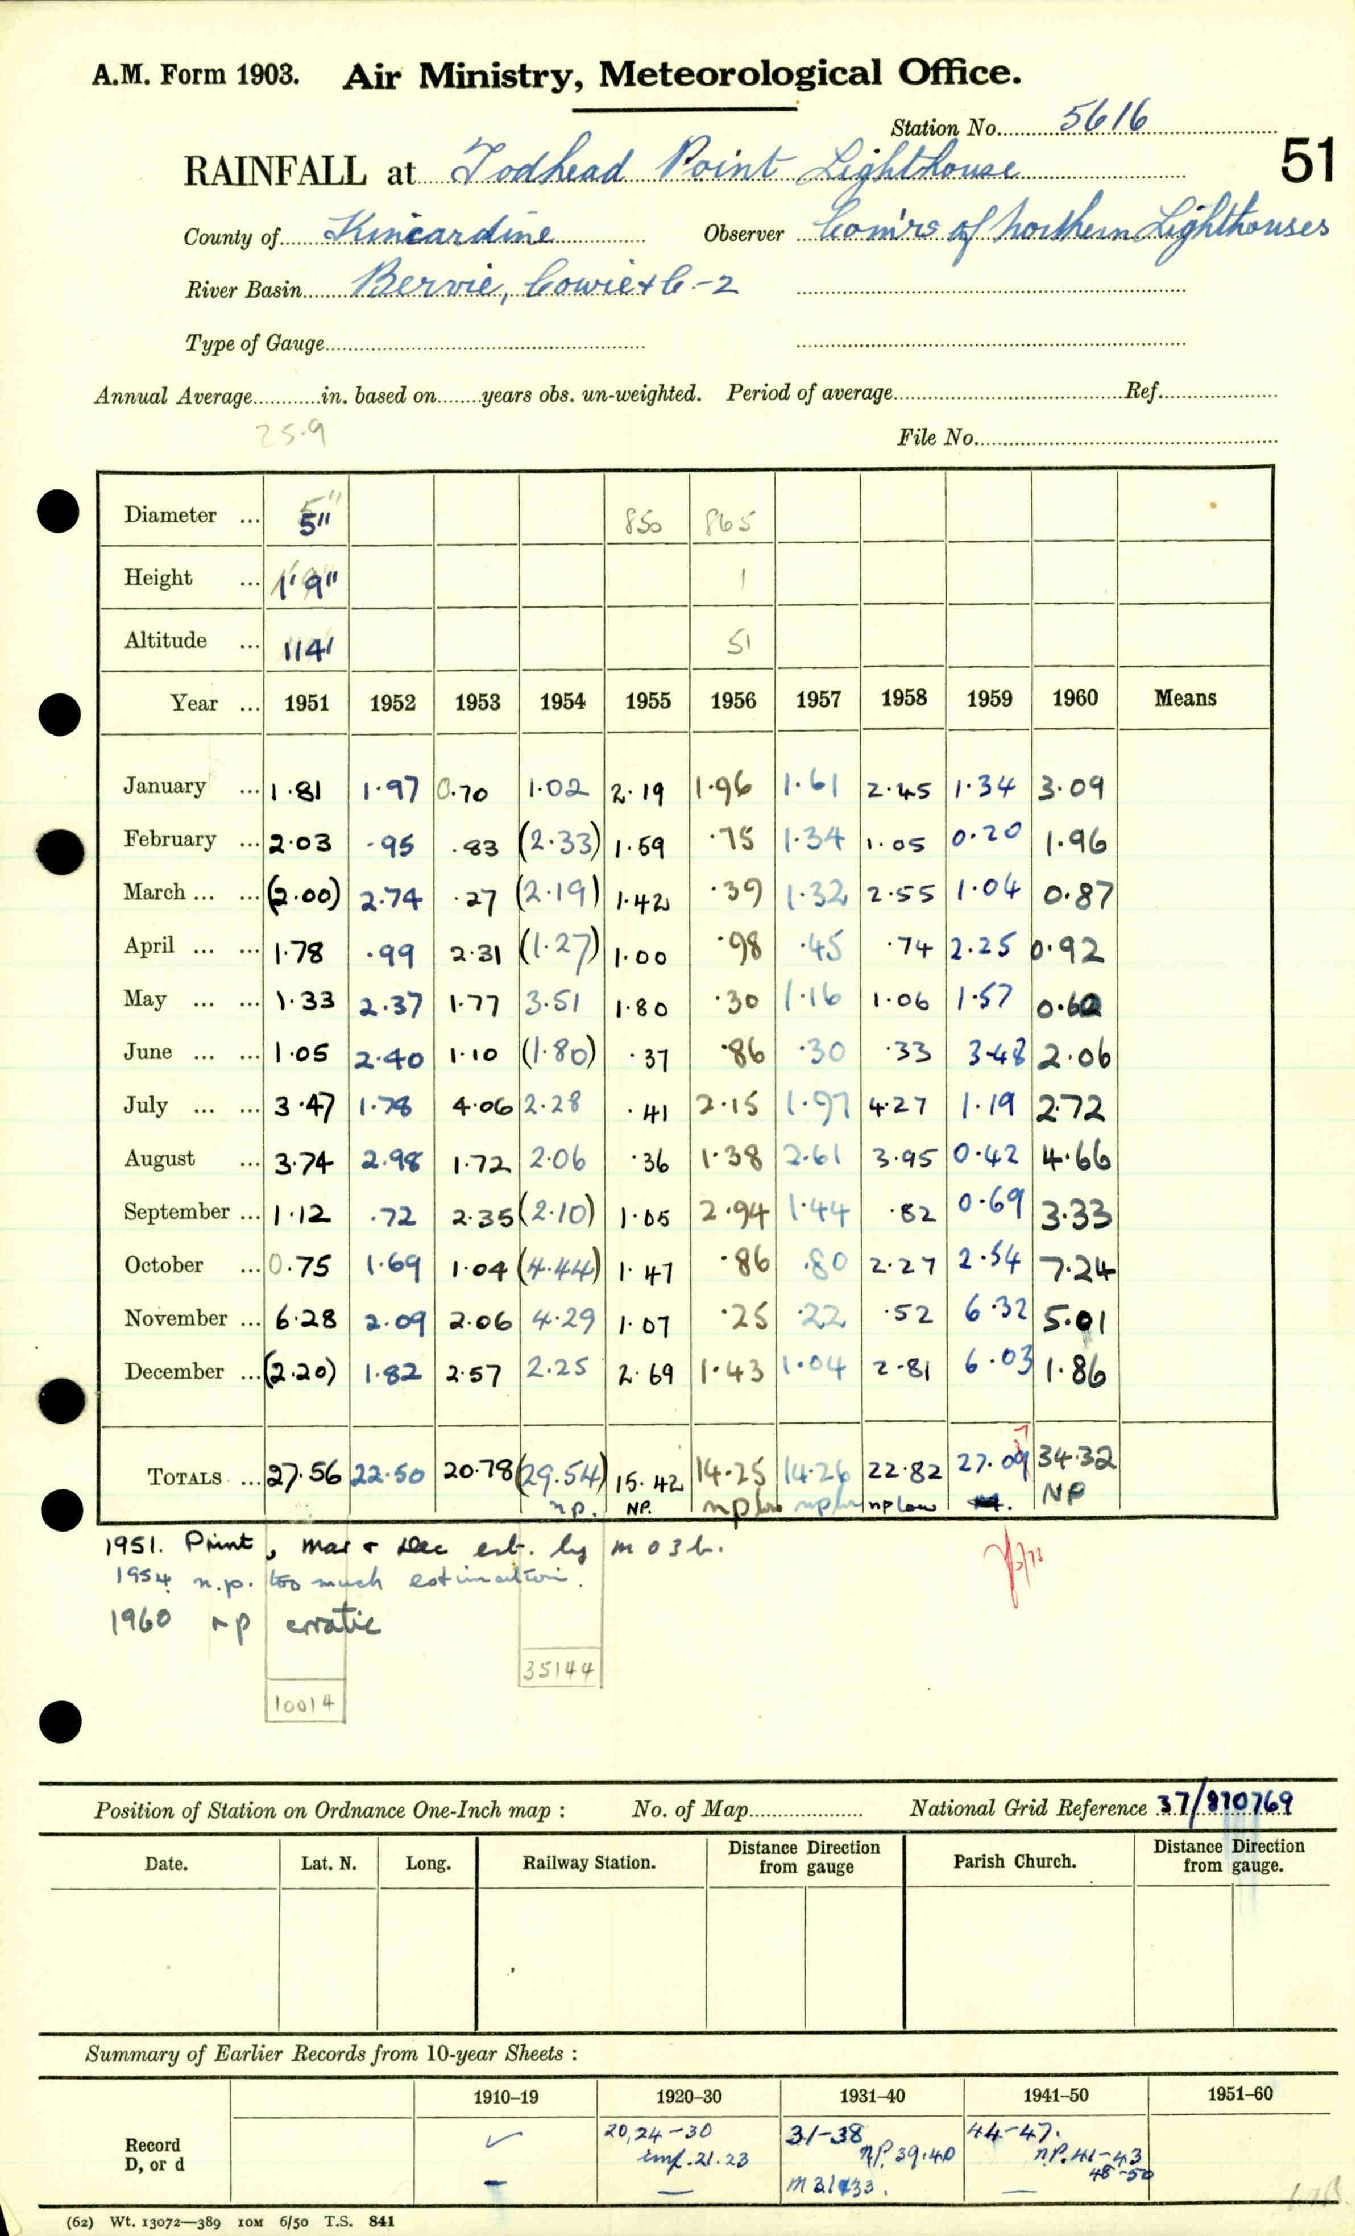 A.M. Form 1903. Air Ministry, Meteorological Office.
Station No. 5616
51
RAINFALL at Todhead Point Lighthouse
County of Kincardine Observer Com'rs of Northern Lighthouses
River Basin Bervie, Cowie & C.-2
Type of Gauge
Annual Average in. based on years obs. un-weighted. Period of average Ref.
25.9
File No.
Diameter ... 5" 850 865
Height ... 1'9" 1
Altitude ... 114' 51
Year ... 1951 1952 1953 1954 1955 1956 1957 1958 1959 1960 Means
January ... 1.81 1.97 0.70 1.02 2.19 1.96 1.61 2.45 1.34 3.09
February ... 2.03 .95 .83 (2.33) 1.59 .75 1.34 1.05 0.20 1.96
March ... ... (2.00) 2.74 .27 (2.19) 1.42 .39 1.32 2.55 1.04 0.87
April ... ... 1.78 .99 2.31 (1.27) 1.00 .98 .45 .74 2.25 0.92
May ... ... 1.33 2.37 1.77 3.51 1.80 .30 1.16 1.06 1.57 0.60
June ... ... 1.05 2.40 1.10 (1.80) .37 .86 .30 .33 3.48 2.06
July ... ... 3.47 1.78 4.06 2.28 .41 2.15 1.97 4.27 1.19 2.72
August ... 3.74 2.98 1.72 2.06 .36 1.38 2.61 3.95 0.42 4.66
September ... 1.12 .72 2.35 (2.10) 1.05 2.94 1.44 .82 0.69 3.33
October ... 0.75 1.69 1.04 (4.44) 1.47 .86 .80 2.27 2.54 7.24
November ... 6.28 2.09 2.06 4.29 1.07 .25 .22 .52 6.32 5.01
December ... (2.20) 1.82 2.57 2.25 2.69 1.43 1.04 2.81 6.03 1.86
TOTALS ... 27.56 22.50 20.78 (29.54) 15.42 14.25 14.26 22.82 27.09 34.32
n.p. NP. np low np low np low NP
1951. Print, Mar & Dec est. by M O 3 b.
1954 n.p. too much estimation.
1960 n p erratic
35144
10014
Position of Station on Ordnance One-Inch map : No. of Map National Grid Reference 37/870769
Date. Lat. N. Long. Railway Station. Distance from gauge Direction Parish Church. Distance from gauge. Direction
Summary of Earlier Records from 10-year Sheets :
1910–19 1920–30 1931–40 1941–50 1951–60
Record D, or d ✓ 20,24-30 31-38 44-47.
imp. 21.23 n.P. 39.40 n.P. 41-43
48-50
— — M 31 & 33. —
(62) Wt. 13072—389 10M 6/50 T.S. 841